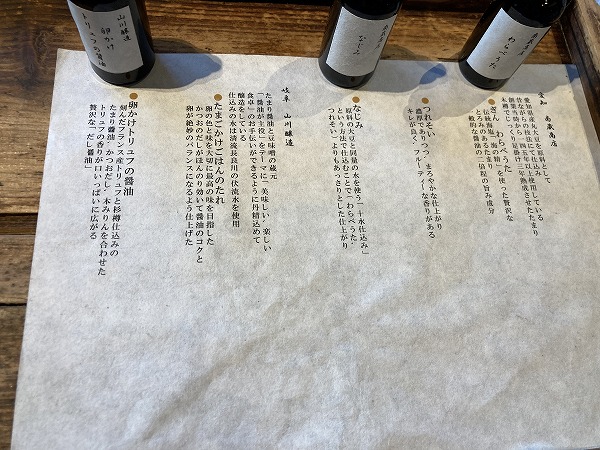 山川醸造
卵かけ
トリュフの醤油
なじみ
わらべうた
愛知
愛知県産の丸大豆を原料として
昔ながらの技法にて
木桶でじっくり足掛け三年熟成させたたまり
ぎん
わらべうた
伝統塩「海の精」を使った贅沢な
とろみのあるたまり
一般的な醤油の二倍程の旨み成分
つれそい
濃厚でありつつ、まろやかな仕上がり
キレが良く、フルーティーな香りがある
なじみ
原料の大豆と同量の水を使う「十水仕込み」
という方法で仕込むことで「わらべうた・
つれそい」よりもあっさりとした仕上がり
岐阜 山川醸造
たまり醤油と豆味噌の蔵にて
「醤油が主役」をテーマに「美味しい・楽しい
食卓」のお手伝いができるように丹精込めて
醸造をしている
仕込みの水は清流長良川の伏流水を使用
たまごかけごはんのたれ
卵の色と味を大切に最高の味を目指した
かつおのだしがほんのり効いて醤油のコクと
卵が絶妙のバランスになるよう仕上げた
卵かけトリュフの醤油
刻んだフランス産トリュフと杉樽仕込みの
たまり醤油・かつおだし・本みりんを合わせた
トリュフの香りが口いっぱいに広がる
贅沢な「だし醤油」